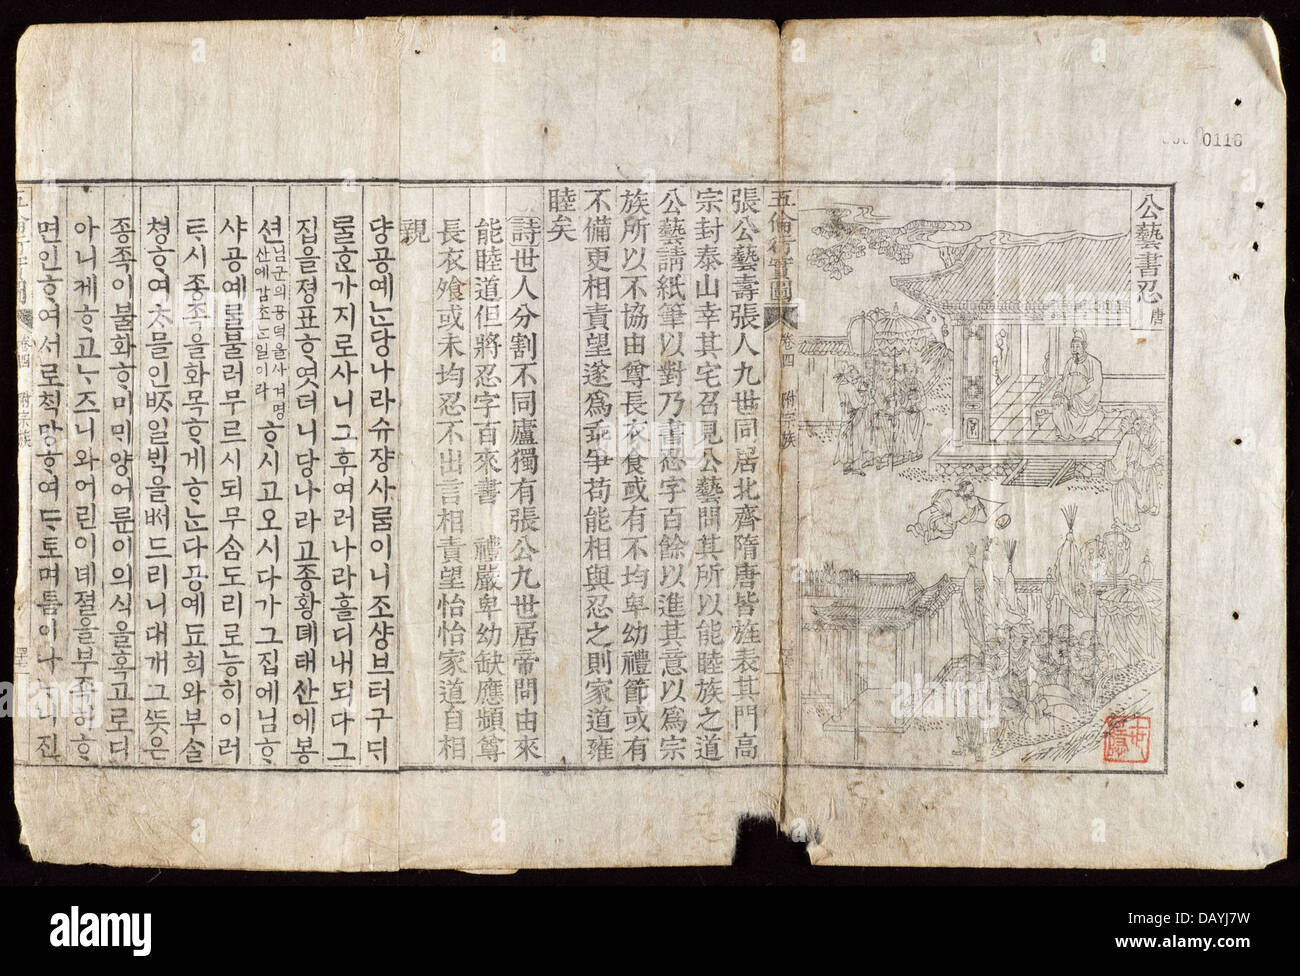 公藝書忍 唐
五倫行實圖 卷四 附宗族
張公藝壽張人九世同居北齊隋唐皆旌表其門高
宗封泰山幸其宅召見公藝問其所以能睦族之道
公藝請紙筆以對乃書忍字百餘以進其意以爲宗
族所以不協由尊長衣食或有不均卑幼禮節或有
不備更相責望遂爲乖爭苟能相與忍之則家道雍
睦矣
詩世人分割不同廬獨有張公九世居帝問由來
能睦道但將忍字百來書 禮嚴卑幼缺應頻尊
長衣飧或未均忍不出言相責望怡怡家道自相
親
댱공예ᄂᆞᆫ당나라슈쟝사ᄅᆞᆷ이니조샹브터구ᄃᆡ
ᄅᆞᆯᄒᆞᆫ가지로사니그후여러나라흘디내되다그
집을졍표ᄒᆞ엿더니당나라고종황뎨태산에봉
션산에감조ᄂᆞᆫ일이라ᄒᆞ시고오시다가그집에님ᄒᆞ
샤공예ᄅᆞᆯ블러무르시되무ᄉᆞᆷ도리로능히이러
ᄐᆞ시종족을화목ᄒᆞ게ᄒᆞᄂᆞᆫ다공예됴희와부ᄉᆞᆯ
쳥ᄒᆞ여ᄎᆞᄆᆞᆯ인ᄶᆞ일ᄇᆡᆨ을ᄡᅥ드리니대개그ᄯᅳᆺ은
종족이불화ᄒᆞ미ᄆᆡ양어룬이의식을혹고로디
아니케ᄒᆞ고ᄂᆞᄌᆞ니와어린이녜졀을부족히ᄒᆞ
면인ᄒᆞ여서로ᄎᆡᆨ망ᄒᆞ여
五倫行實圖 卷四 附宗族
0116
alamy
Image ID: DAYJ7W
www.alamy.com